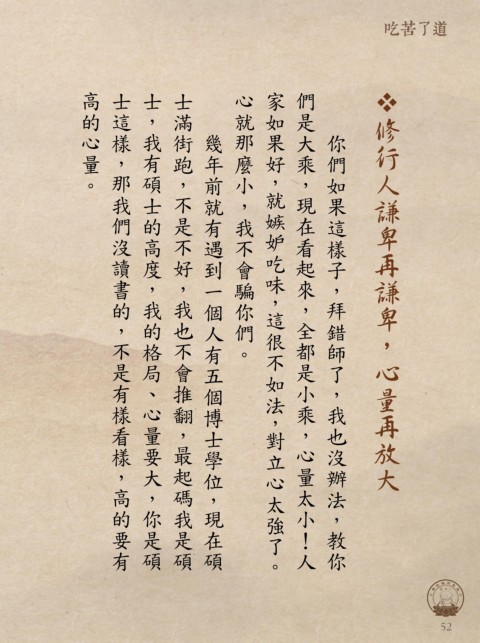 吃苦了道
❖修行人謙卑再謙卑，心量再放大
你們如果這樣子，拜錯師了，我也沒辦法，教你
們是大乘，現在看起來，全都是小乘，心量太小！人
家如果好，就嫉妒吃味，這很不如法，對立心太強了。
心就那麼小，我不會騙你們。
幾年前就有遇到一個人有五個博士學位，現在碩
士滿街跑，不是不好，我也不會推翻，最起碼我是碩
士，我有碩士的高度，我的格局、心量要大，你是碩
士這樣，那我們沒讀書的，不是有樣看樣，高的要有
高的心量。
52